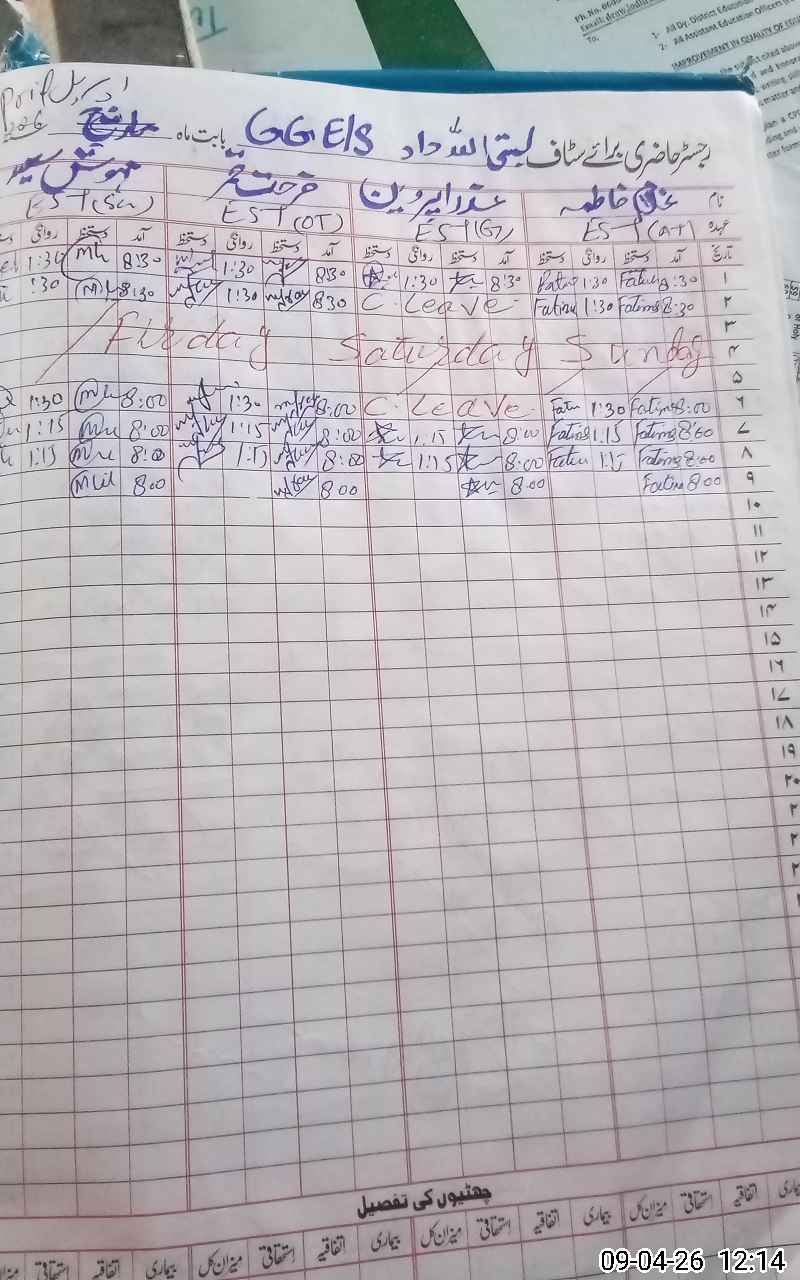 Ph. No. 066
Email: deow.
To,
1- All Dy. District Education
2- All Assistant Education Officers
IMPROVEMENT IN QUALITY OF EDU
اپریل
رجسٹر حاضری برائے سٹاف بستی اللہ داد GGE/S بابت ماہ مارچ
نام غلام فاطمہ عذرا پروین فرحت قمر مہوش سعید
عہدہ EST(AT) EST(G) EST(OT) EST(Sci)
تاریخ آمد دستخط روانگی دستخط آمد دستخط روانگی دستخط آمد دستخط روانگی دستخط آمد دستخط روانگی
۱ 8:30 Fatima 1:30 Fatima 8:30 1:30 8:30 1:30 8:30 Mh 1:30
۲ 8:30 Fatima 1:30 Fatima C. Leave 8:30 1:30 8:30 :30
۳
۴ Friday Saturday Sunday
۵
۶ 8:00 Fatima 1:30 Fatima C. Leave 8:00 1:30 8:00 1:30
۷ 8:00 Fatima 1:15 Fatima 8:00 1:15 8:00 1:15 8:00 1:15
۸ 8:00 Fatima 1:15 Fatima 8:00 1:15 8:00 1:15 8:00 1:15
۹ 8:00 Fatima 8:00 8:00 8:00
۱۰
۱۱
۱۲
۱۳
۱۴
۱۵
۱۶
۱۷
۱۸
۱۹
۲۰
۲
۲
۲
چھٹیوں کی تفصیل
بیماری اتفاقیہ استحقاقی میزان کل بیماری اتفاقیہ استحقاقی میزان کل بیماری اتفاقیہ استحقاقی میزان کل بیماری اتفاقیہ استحقاقی میزان
09-04-26 12:14